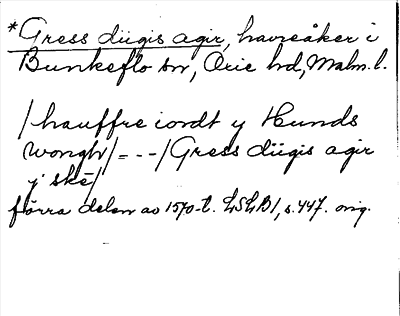 *Gress diigis agir, havreåker i
Bunkeflo sn, Oxie hd, Malm. l.
/hauffre iordt y Hunds
wongh/=--/Gress diigis agir
y skē/
förra delen av 1570-t. LSLB1, s. 447. orig.